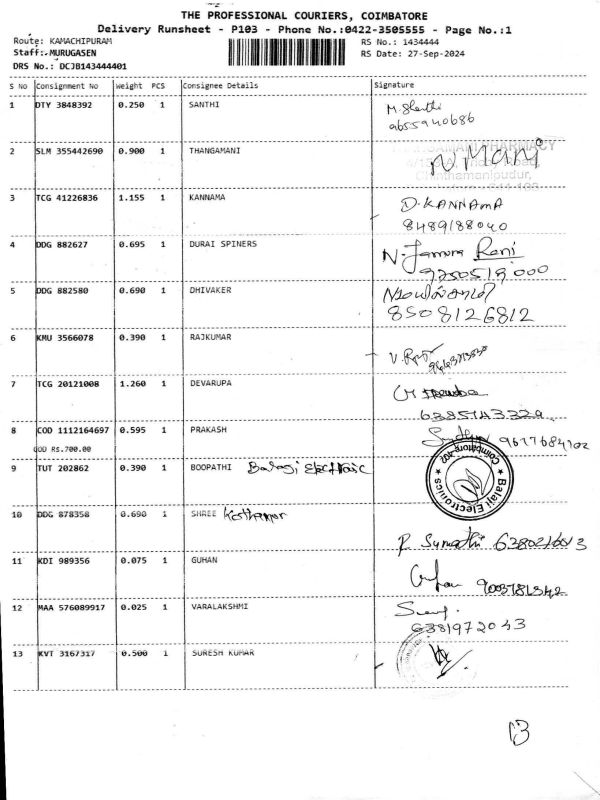 THE PROFESSIONAL COURIERS, COIMBATORE
Delivery Runsheet - P103 - Phone No.:0422-3505555 - Page No.:1
Route: KAMACHIPURAM RS No.: 1434444
Staff:-MURUGASEN RS Date: 27-Sep-2024
DRS No.: DCJB143444401
S No Consignment No Weight PCS Consignee Details Signature
1 DTY 3848392 0.250 1 SANTHI
9655940686
2 SLM 355442690 0.900 1 THANGAMANI N Mani
3 TCG 41226836 1.155 1 KANNAMA D.KANNAMA
8489188040
4 DDG 882627 0.695 1 DURAI SPINERS N. Rani
5 DDG 882580 0.690 1 DHIVAKER
8508126812
6 KMU 3566078 0.390 1 RAJKUMAR
7 TCG 20121008 1.260 1 DEVARUPA
8 COD 1112164697 0.595 1 PRAKASH 9677684102
COD RS.700.00
9 TUT 202862 0.390 1 BOOPATHI Balaji Electronic
Balaji Electronics
10 DDG 878358 0.690 1 SHREE
P. Sumathi
11 KDI 989356 0.075 1 GUHAN
12 MAA 576089917 0.025 1 VARALAKSHMI
6381972043
13 KVT 3167317 0.500 1 SURESH KUMAR
13